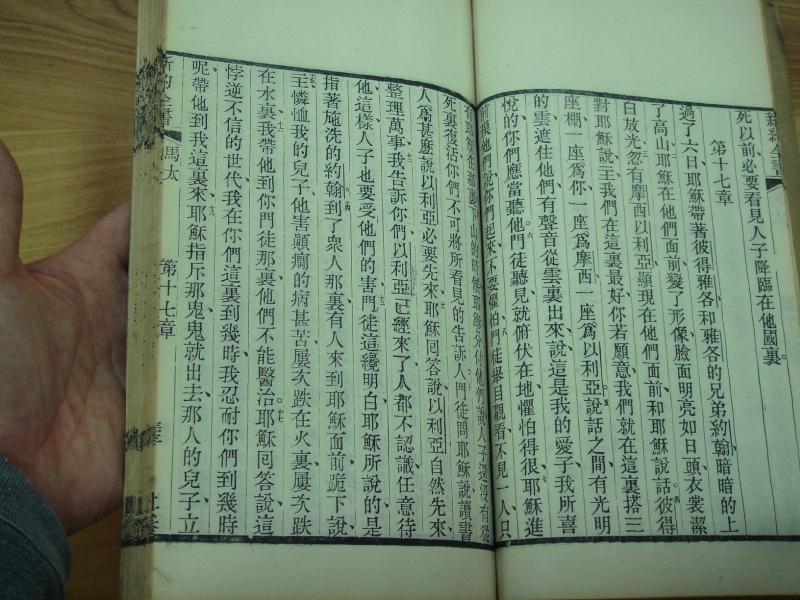 新約全書
死以前必要看見人子降臨在他國裏。
第十七章
過了六日、耶穌帶著彼得雅各和雅各的兄弟約翰、暗暗的上
了高山、耶穌在他們面前變了形像、臉面明亮如日頭、衣裳潔
白放光、忽有摩西以利亞顯現在他們面前、和耶穌說話。彼得
對耶穌說、主、我們在這裏最好、你若願意、我們就在這裏搭三
座棚、一座爲你、一座爲摩西、一座爲以利亞。說話之間、有光明
的雲遮住他們、有聲音從雲裏出來、說、這是我的愛子、我所喜
悅的、你們應當聽他。門徒聽見就俯伏在地、懼怕得很、耶穌進
前 他們、說、你們起來、不要懼怕、門徒舉目觀看、不見一人、只
有耶穌在那裏。下山的時候、耶穌分付他們說、人子還沒有從
死裏復活、你們不可將所看見的告訴人。門徒問耶穌說、讀書
人爲甚麼說以利亞必要先來、耶穌囘答說、以利亞自然先來、
整理萬事、我告訴你們、以利亞已經來了、人都不認識、任意待
他、這樣人子也要受他們的害、門徒這纔明白耶穌所說的是
指著施洗的約翰。到了衆人那裏、有人來到耶穌面前、跪下說、
主憐恤我的兒子、他害顚癇的病甚苦、屢次跌在火裏、屢次跌
在水裏、我帶他到你門徒那裏、他們不能醫治。耶穌囘答說、這
悖逆不信的世代、我在你們這裏到幾時、我忍耐你們到幾時
呢、帶他到我這裏來、耶穌指斥那鬼、鬼就出去、那人的兒子立
新約全書 馬太 第十七章